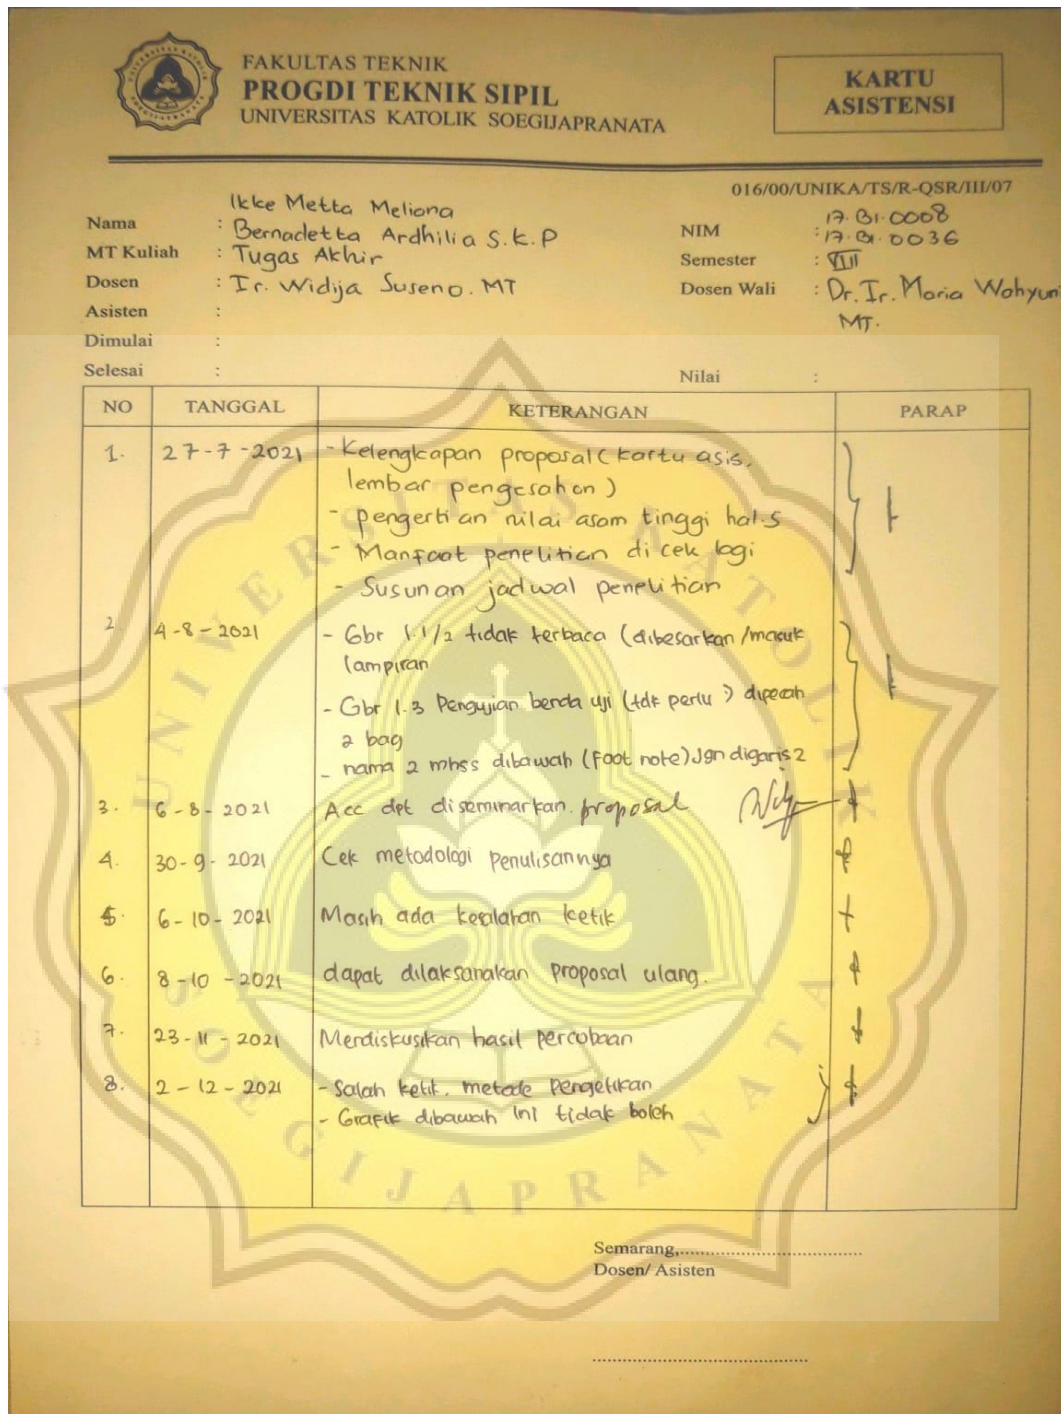 FAKULTAS TEKNIK
PROGDI TEKNIK SIPIL
UNIVERSITAS KATOLIK SOEGIJAPRANATA
KARTU
ASISTENSI
016/00/UNIKA/TS/R-QSR/III/07
Ikke Metta Meliana
Nama : Bernadetta Ardhilia S.K.P
MT Kuliah : Tugas Akhir
Dosen : Ir. Widija Suseno. MT
Asisten :
Dimulai :
Selesai :
17.B1.0008
NIM : 17.B1.0036
Semester : VIII
Dosen Wali : Dr. Ir. Maria Wahyuni
MT.
Nilai :
NO TANGGAL KETERANGAN PARAP
1. 27-7-2021 - Kelengkapan proposal (kartu asis,
lembar pengesahan)
- pengertian nilai asam tinggi hal.5
- Manfaat penelitian di cek lagi
- Susunan jadwal penelitian
2 4-8-2021 - Gbr 1.1/2 tidak terbaca (dibesarkan/masuk
lampiran
- Gbr 1.3 Pengujian benda uji (tdk perlu) dipecah
2 bag
- nama 2 mhss dibawah (foot note) Jgn digaris2
3. 6-8-2021 Acc dpt diseminarkan. proposal
4. 30-9-2021 Cek metodologi penulisannya
5. 6-10-2021 Masih ada kesalahan ketik
6. 8-10-2021 dapat dilaksanakan proposal ulang.
7. 23-11-2021 Merdiskusikan hasil percobaan
8. 2-12-2021 - Salah ketik. metode pengetikan
- Grafik dibawah ini tidak boleh
Semarang,...............................
Dosen/ Asisten
UNIVERSITAS KATOLIK
SOEGIJAPRANATA